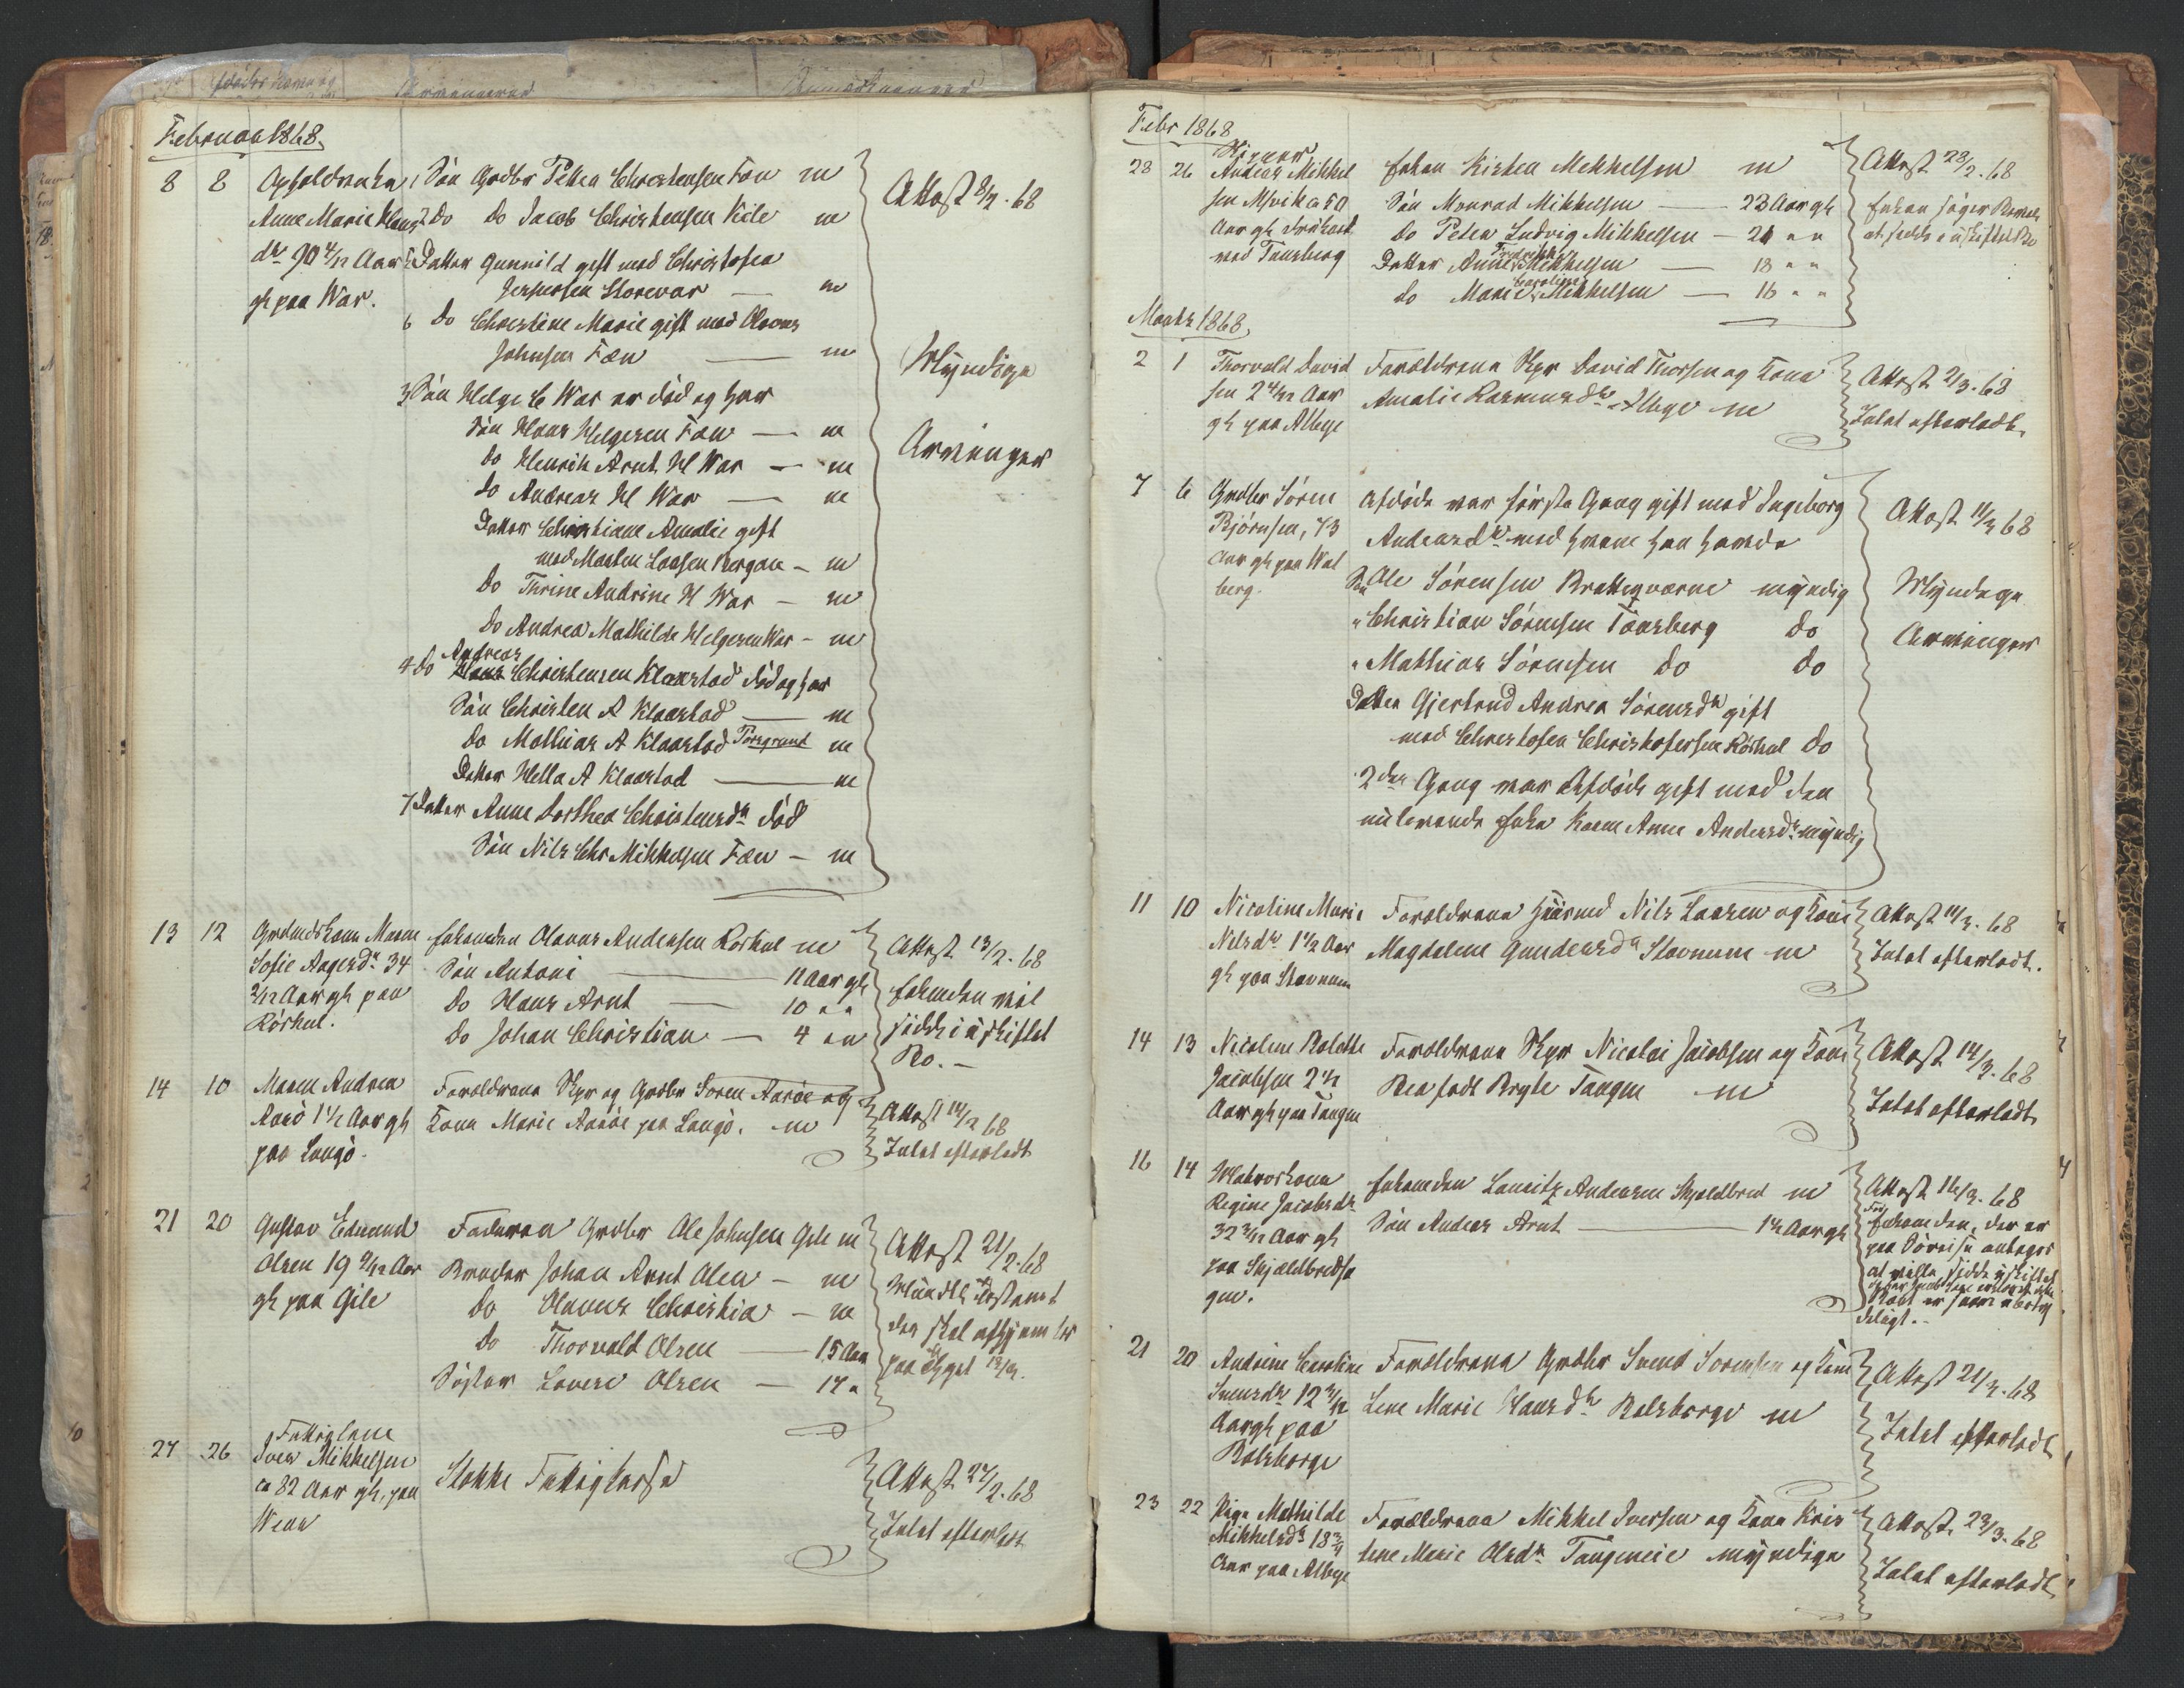 Februar 1868.
8 8 Opholdsenke 1 Søn Grdbr Petter Christensen Føn m
Anne Marie Hans 2 do do Jacob Christensen Kile m
dtr 90 4/12 Aar 5 Datter Gunnild gift med Christofer
gl paa War. Jespersen Storevar — m
6 do Christine Marie gift med Olaves
Johnsen Føn — m
3 Søn Helge C War er død og har
Søn Hans Helgesen Føn — m
do Henrik Arnt H War — m
do Andreas H War — m
Datter Christiane Amalie gift
med Morten Larsen Bergan — m
do Thrine Andrine H War — m
do Andrea Mathilde Helgesen War — m
Andreas
4 do Hans Christensen Klaastad død og har
Søn Christen A Klaastad — m
do Mathias A Klaastad Porsgrund m
Datter Hella A Klaastad — m
7 Datter Anne Dorthea Christensdtr død
Søn Nils Chr Mikkelsen Føn — m
Attest 8/2. 68
Myndige
Arvinger
13 12 Grdmdskone Maren Enkemanden Olavus Andersen Røskul m
Sofie Aagesdtr 34 Søn Antoni — 11 Aar gl
2/12 Aar gl paa do Hans Arnt — 10 " "
Røskul. do Johan Christian — 4 " "
Attest 13/2. 68
Enkemden vil
sidde i uskiftet
Bo. —
14 10 Maren Andrea Forældrene Skpr og Grdbr Soren Aarøe og
Aarø 1 1/2 Aar gl Kone Marie Aarøe paa Langø. m
paa Langø.
Attest 14/2 68
Intet efterladt
21 20 Gustav Edvard Faderen Grdbr Ole Johnsen Gile m
Olsen 19 9/12 Aar Broder Johan Arnt Olsen — m
gl paa Gile do Olavus Christian — m
do Thorvald Olsen — 15 Aar
Søster Lovise Olsen — 17 "
Attest 21/2. 68
Mundtl Testament
der skal afhjemles
paa 12/3.
Fattiglem
27 26 Iver Mikkelsen Stokke Fattigkasse
ca 82 Aar gl, paa
Wear
Attest 27/2. 68
Intet efterladt
Febr 1868
28 26 Andreas Mikkel Enken Kirsten Mikkelsen m
sen Msvik ca 50 Søn Konrad Mikkelsen — 23 Aar gl
Aar gl do Peter Ludvig Mikkelsen — 21 " "
ved Tønsberg Datter Anne Mikkelsen — 18 " "
do Marie Caroline Mikkelsen — 16 " "
Attest 28/2. 68
Marts 1868.
2 1 Thorvald David Forældrene Skpr David Thorsen og Kone
sen 2 4/12 Aar Amalie Rasmusdtr Ilbge m
gl paa Ilbge
Attest 2/3. 68
Intet efterladt.
7 6 Grdbr Søren Afdøde var første Gang gift med Ingeborg
Bjørnsen, 73 Andersdtr med hvem han havde
Aar gl paa Wal Søn Ole Sørensen Brattegværne myndig
berg. " Christian Sørensen Tønsberg do
" Mathias Sørensen do do
Datter Gjertrud Andrea Sørensdtr gift
med Christofer Christofersen Røskul do
2den Gang var Afdøde gift med den
nulevende Enke Karen Anne Andersdtr myndig
Attest 11/3 68
Myndige
Arvinger
11 10 Nicoline Marie Forældrene Husmd Nils Larsen og Kone
Nilsdtr 1 1/2 Aar Magdalene Gundersdtr Stavnum m
gl paa Stavnum
Attest 11/3. 68
Intet efterladt.
14 13 Nicoline Bolette Forældrene Skpr Nicolai Jacobsen og Kone
Jacobsen 2 1/2 Bea født Bryle Tangen m
Aar gl paa Tangen
Attest 14/3. 68
Intet efterladt
16 14 Matroskone Enkemden Lauritz Andersen Skjeldbred m
Regine Jacobsdtr Søn Anders Arnt — 1 1/2 Aar gl
32 3/12 Aar gl
paa Skjældbredsa
gen.
Attest 16/3. 68
Enkemden, der er
paa Søreise antages
at ville sidde uskiftet
21 20 Andrine Caroline Forældrene Grdbr Svend Sorensen og Kone
Svensdtr 12 3/12 Lene Marie Hansdtr Bolsborge m
Aar gl paa
Bolsborge
Attest 21/3. 68
Intet efterladt
23 22 Pige Mathilde Forældrene Mikkel Iversen og Kone Kris
Mikkelsdtr 18 3/4 tene Marie Olsdtr Tangeneie myndige
Aar paa Ilbge
Attest 23/3. 68
Intet efterladt